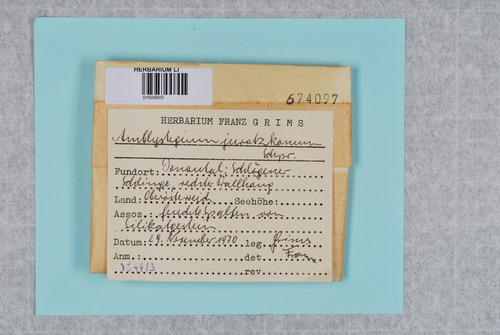 HERBARIUM LI
01609905
674097
HERBARIUM FRANZ GRIMS
Amblystegium juratzkanum
Schpr.
Fundort: Donautal: Schlögener
Schlinge, rechter Wallhang
Land: Oberösterreich Seehöhe:
Assoz. feuchte Spalten von
Silikatgestein
Datum: 29. November 1970 leg. Grims
Anm. det. Franz
rev.